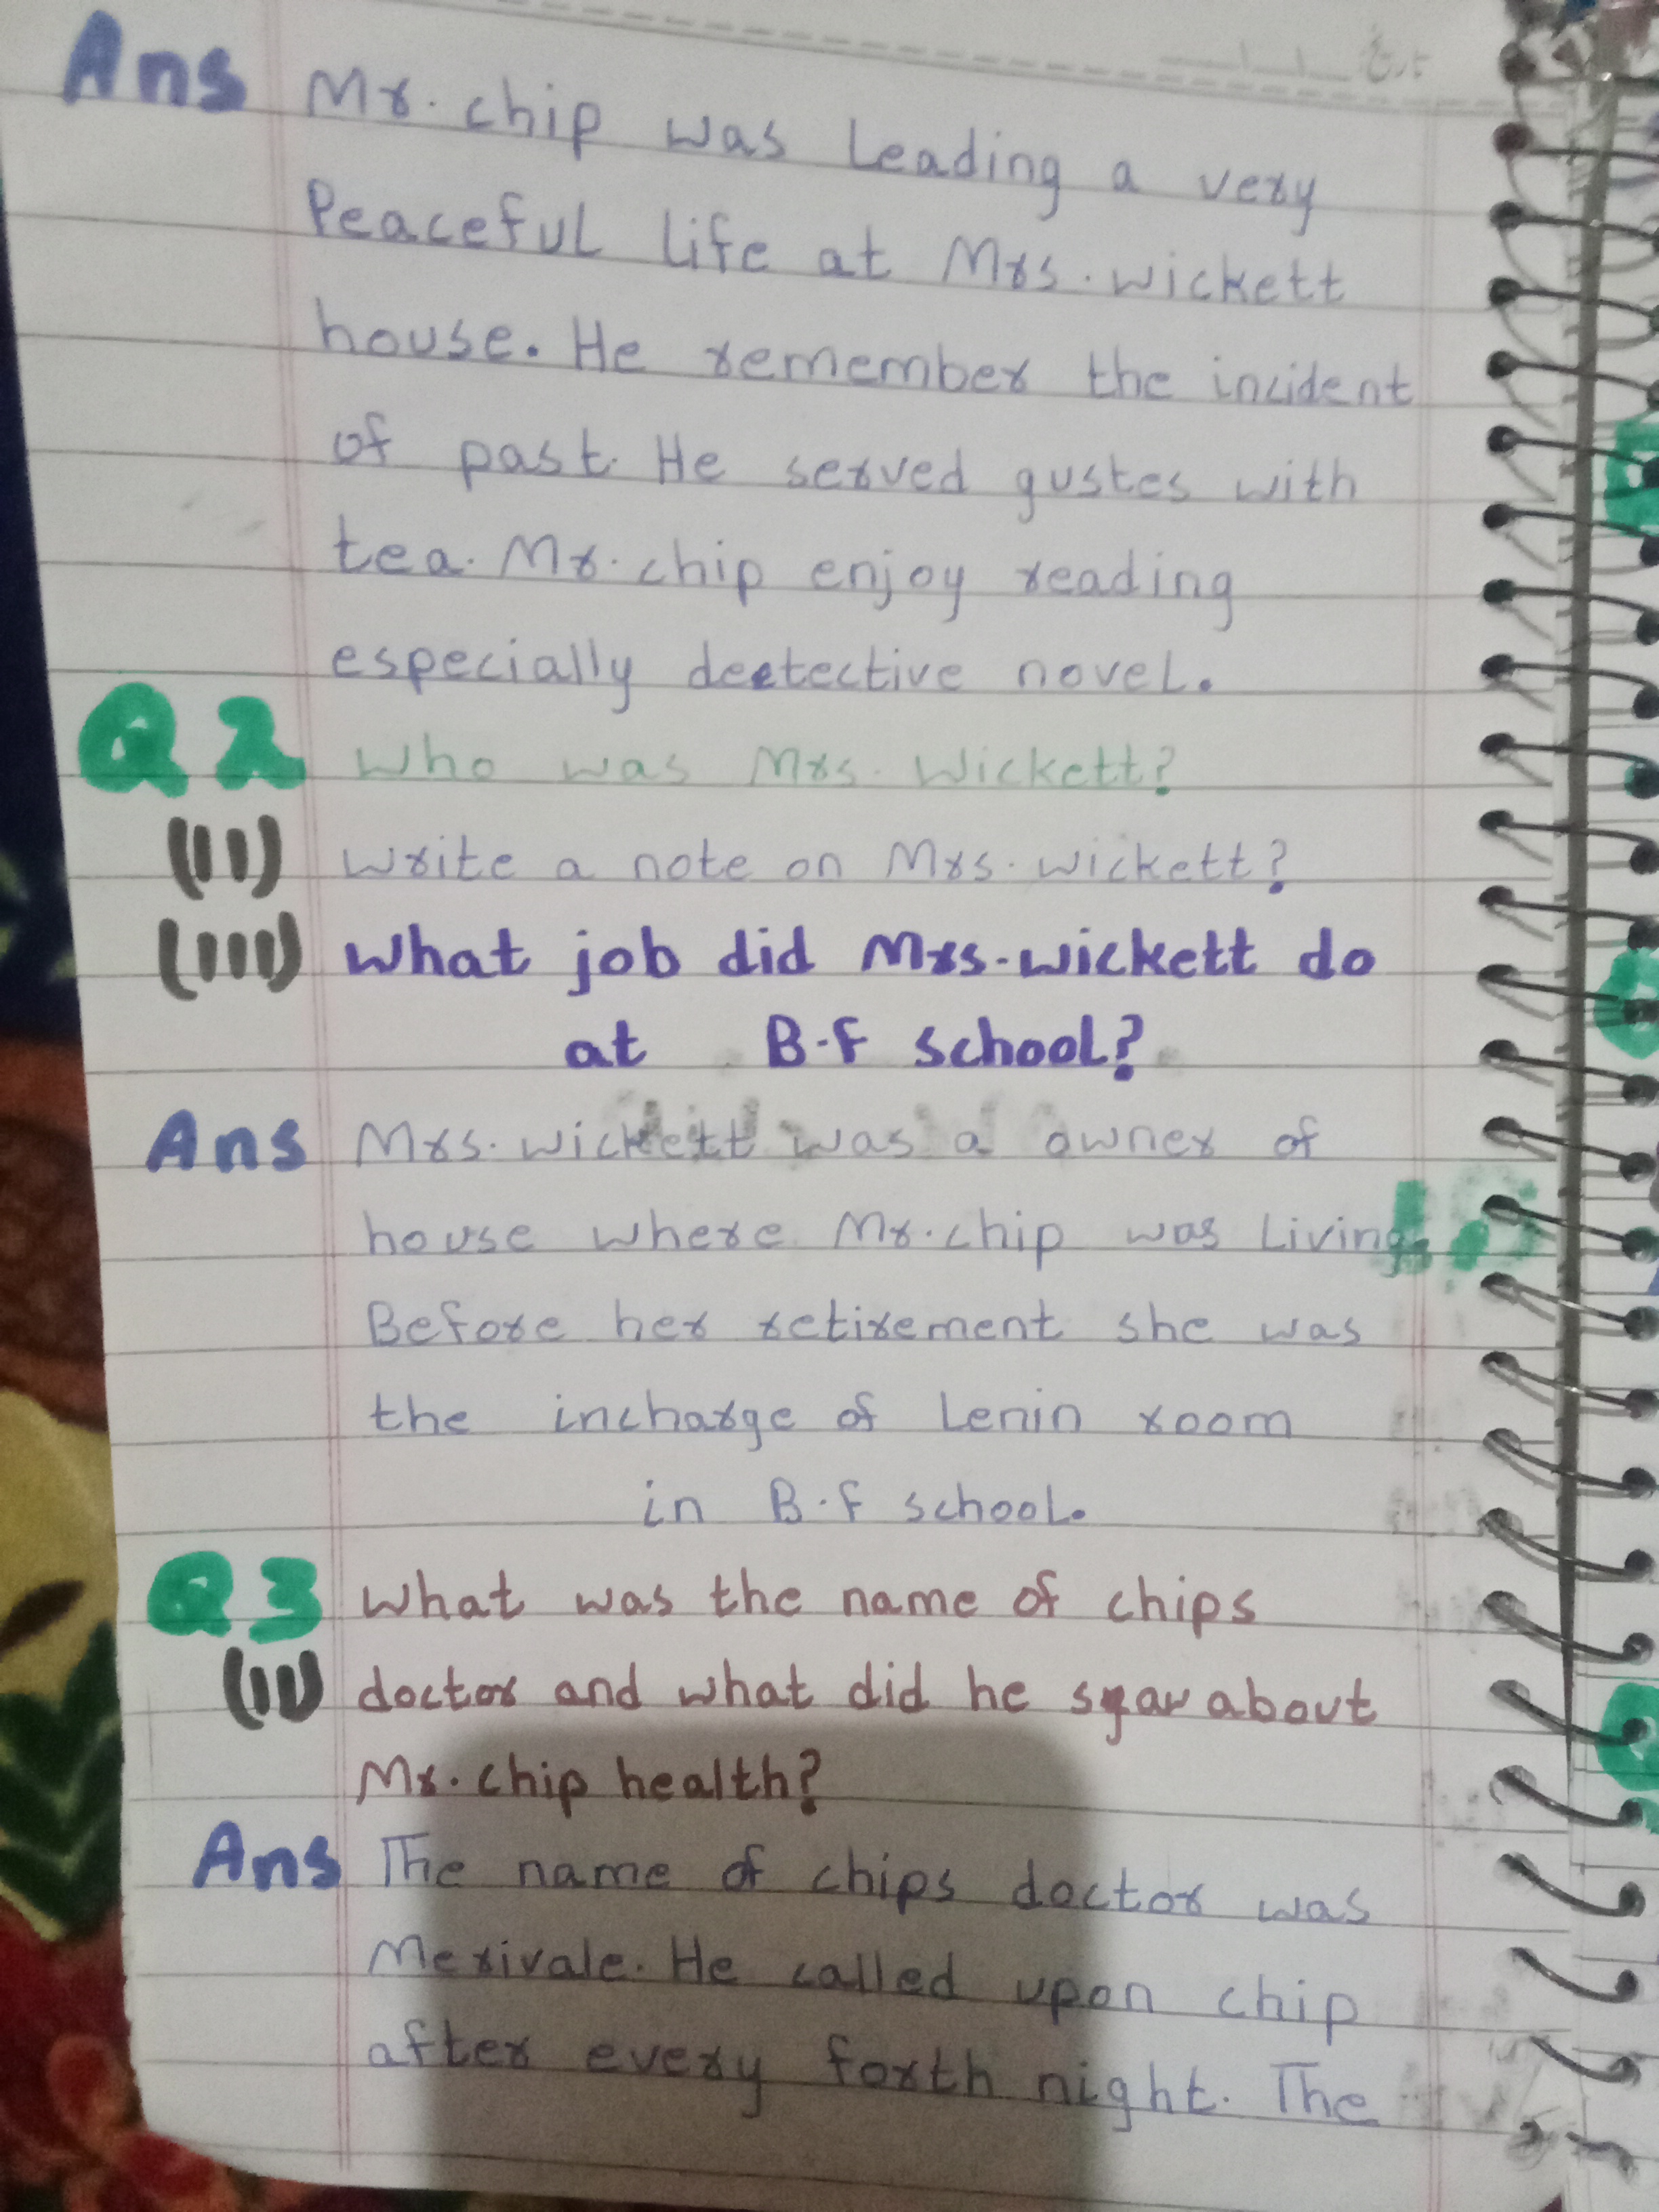 تاریخ
Ans Mr. chip was Leading a very
Peaceful life at Mrs. wickett
house. He remember the incident
of past. He served gustes with
tea. Mr. chip enjoy reading
especially deetective novel.
Q2 Who was Mrs. Wickett?
(II) Write a note on Mrs. wickett?
(III) What job did Mrs. wickett do
at B.F school?
Ans Mrs. wickett was a owner of
house where Mr. chip was Living.
Before her retirement she was
the incharge of Lenin room
in B.F school.
Q3 What was the name of chips
(II) doctor and what did he about
Mr. chip health?
Ans The name of chips doctor was
Merivale. He called upon chip
after every forth night. The